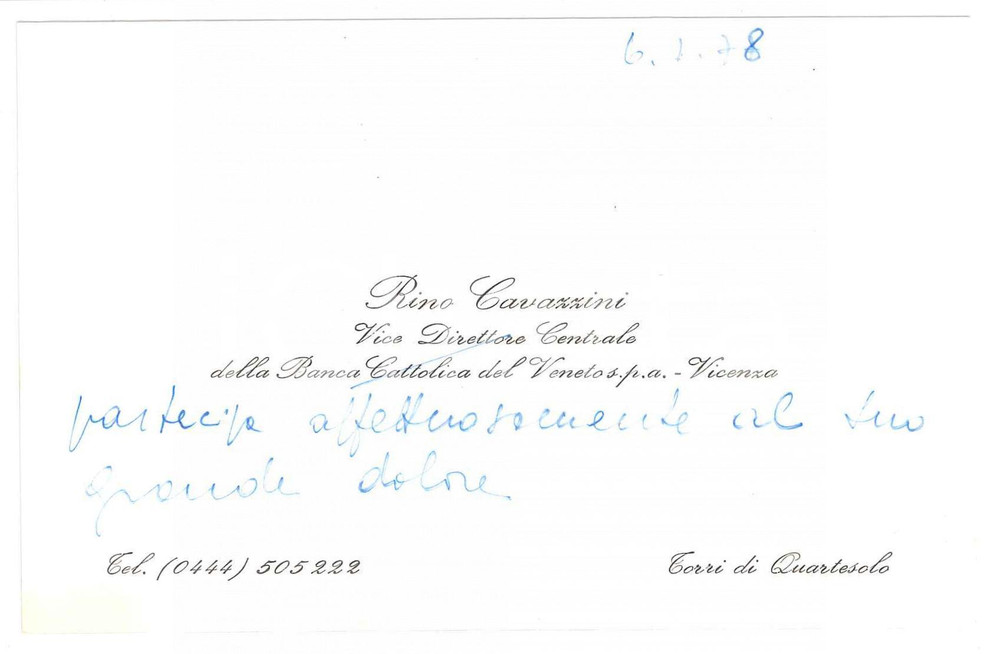 6. 1. 78
Rino Cavazzini
Vice Direttore Centrale
della Banca Cattolica del Veneto s.p.a. - Vicenza
partecipa affettuosamente al tuo
grande dolore
Tel. (0444) 505222
Torri di Quartesolo